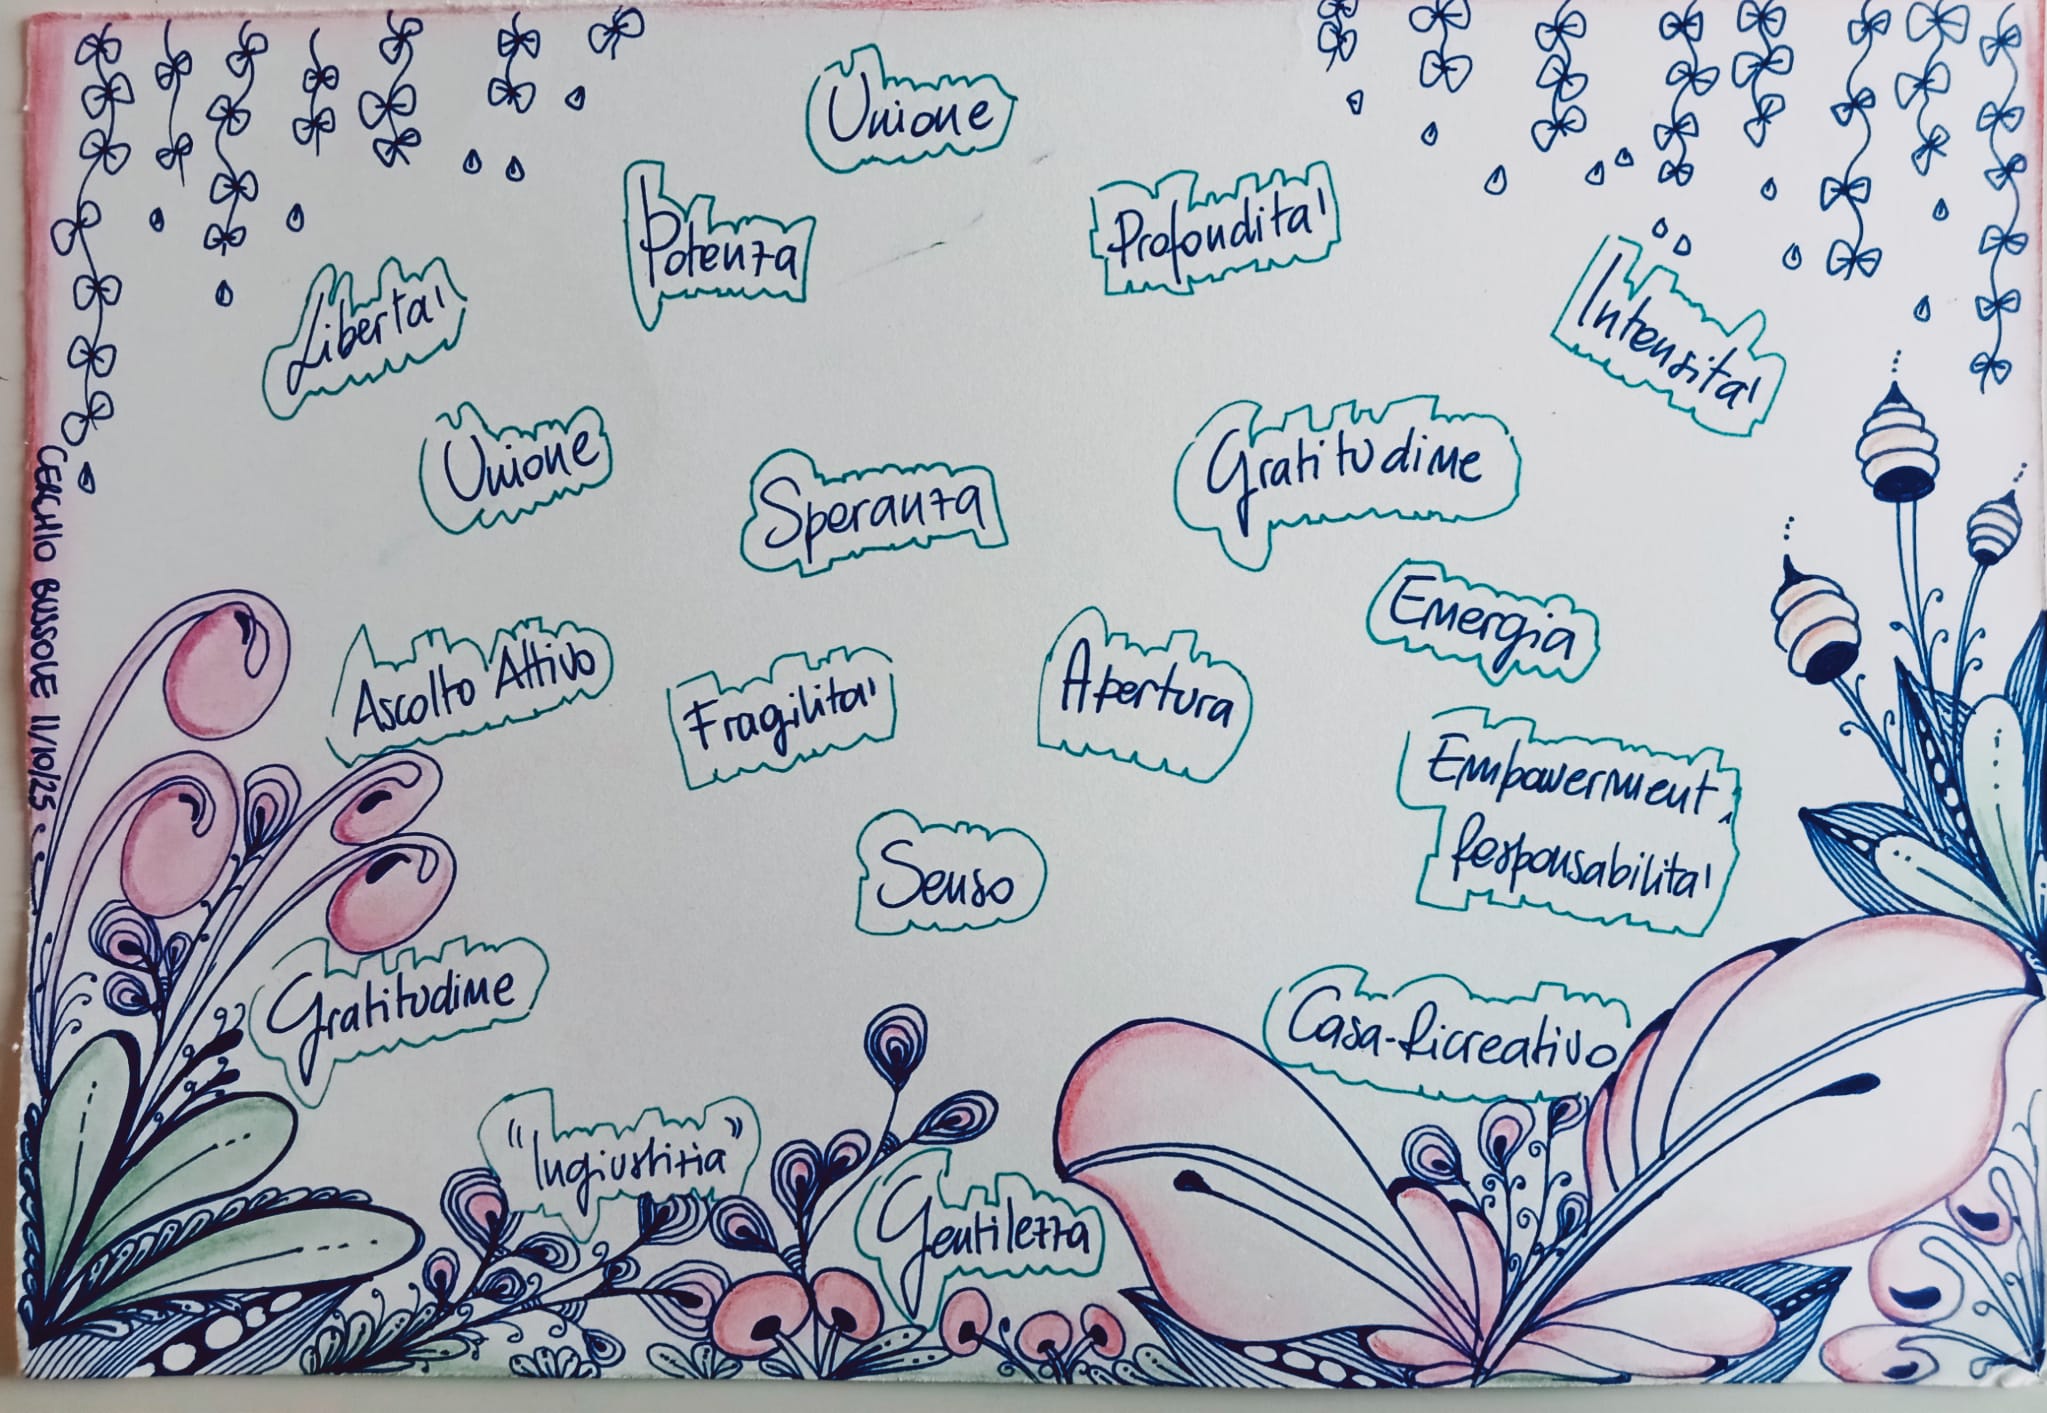 Unione
Potenza
Profondita'
Liberta'
Intensita'
Unione
Speranza
Gratitudine
Energia
Ascolto Attivo
Fragilita'
Apertura
Empowerment,
Responsabilita'
Senso
Gratitudine
Casa-Ricreativo
"Ingiustizia"
Gentilezza
CERCHIO BUSSOLE 11/10/25